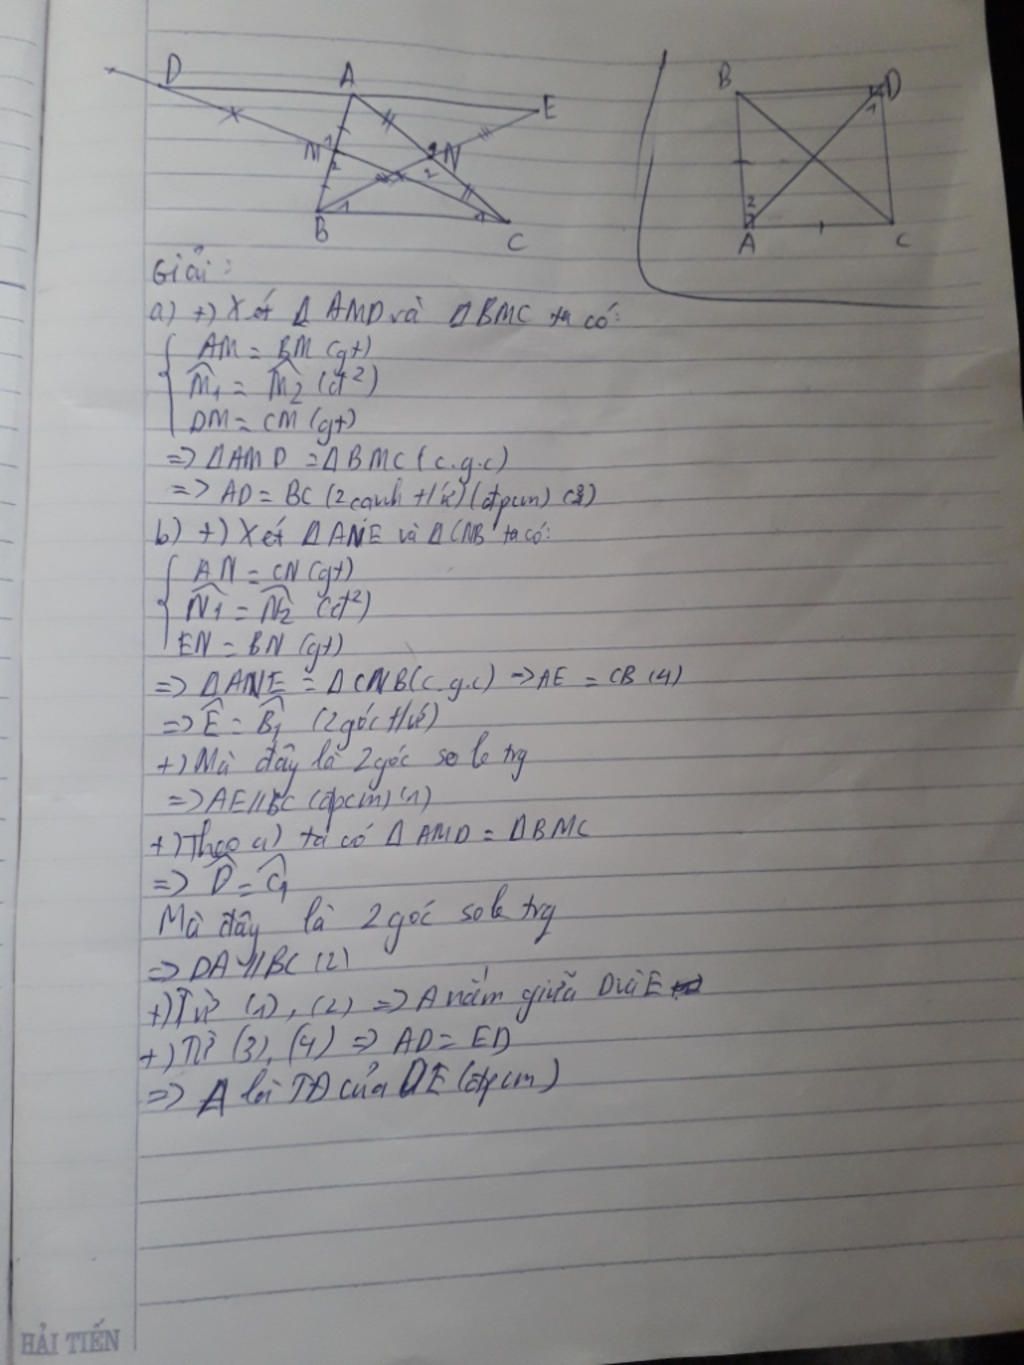 D A E
M 1 2 2 N 2
B 1 1 C
B D 1
2 A C
Giải:
a) +) Xét Δ AMD và ΔBMC ta có:
AM = BM (gt)
M̂1 = M̂2 (đ²)
DM = CM (gt)
=> ΔAMD = ΔBMC (c.g.c)
=> AD = BC (2 cạnh t/ứ) (đpcm) (3)
b) +) Xét ΔANE và ΔCNB ta có:
AN = CN (gt)
N̂1 = N̂2 (đ²)
EN = BN (gt)
=> ΔANE = ΔCNB (c.g.c) => AE = CB (4)
=> Ê = B̂1 (2 góc t/ứ)
+) Mà đây là 2 góc so le trg
=> AE // BC (đpcm) (1)
+) Theo a) ta có ΔAMD = ΔBMC
=> D̂ = Ĉ1
Mà đây là 2 góc so le trg
=> DA // BC (2)
+) Từ (1), (2) => A nằm giữa D và E
+) Từ (3), (4) => AD = ED
=> A là TĐ của DE (đpcm)
HẢI TIẾN